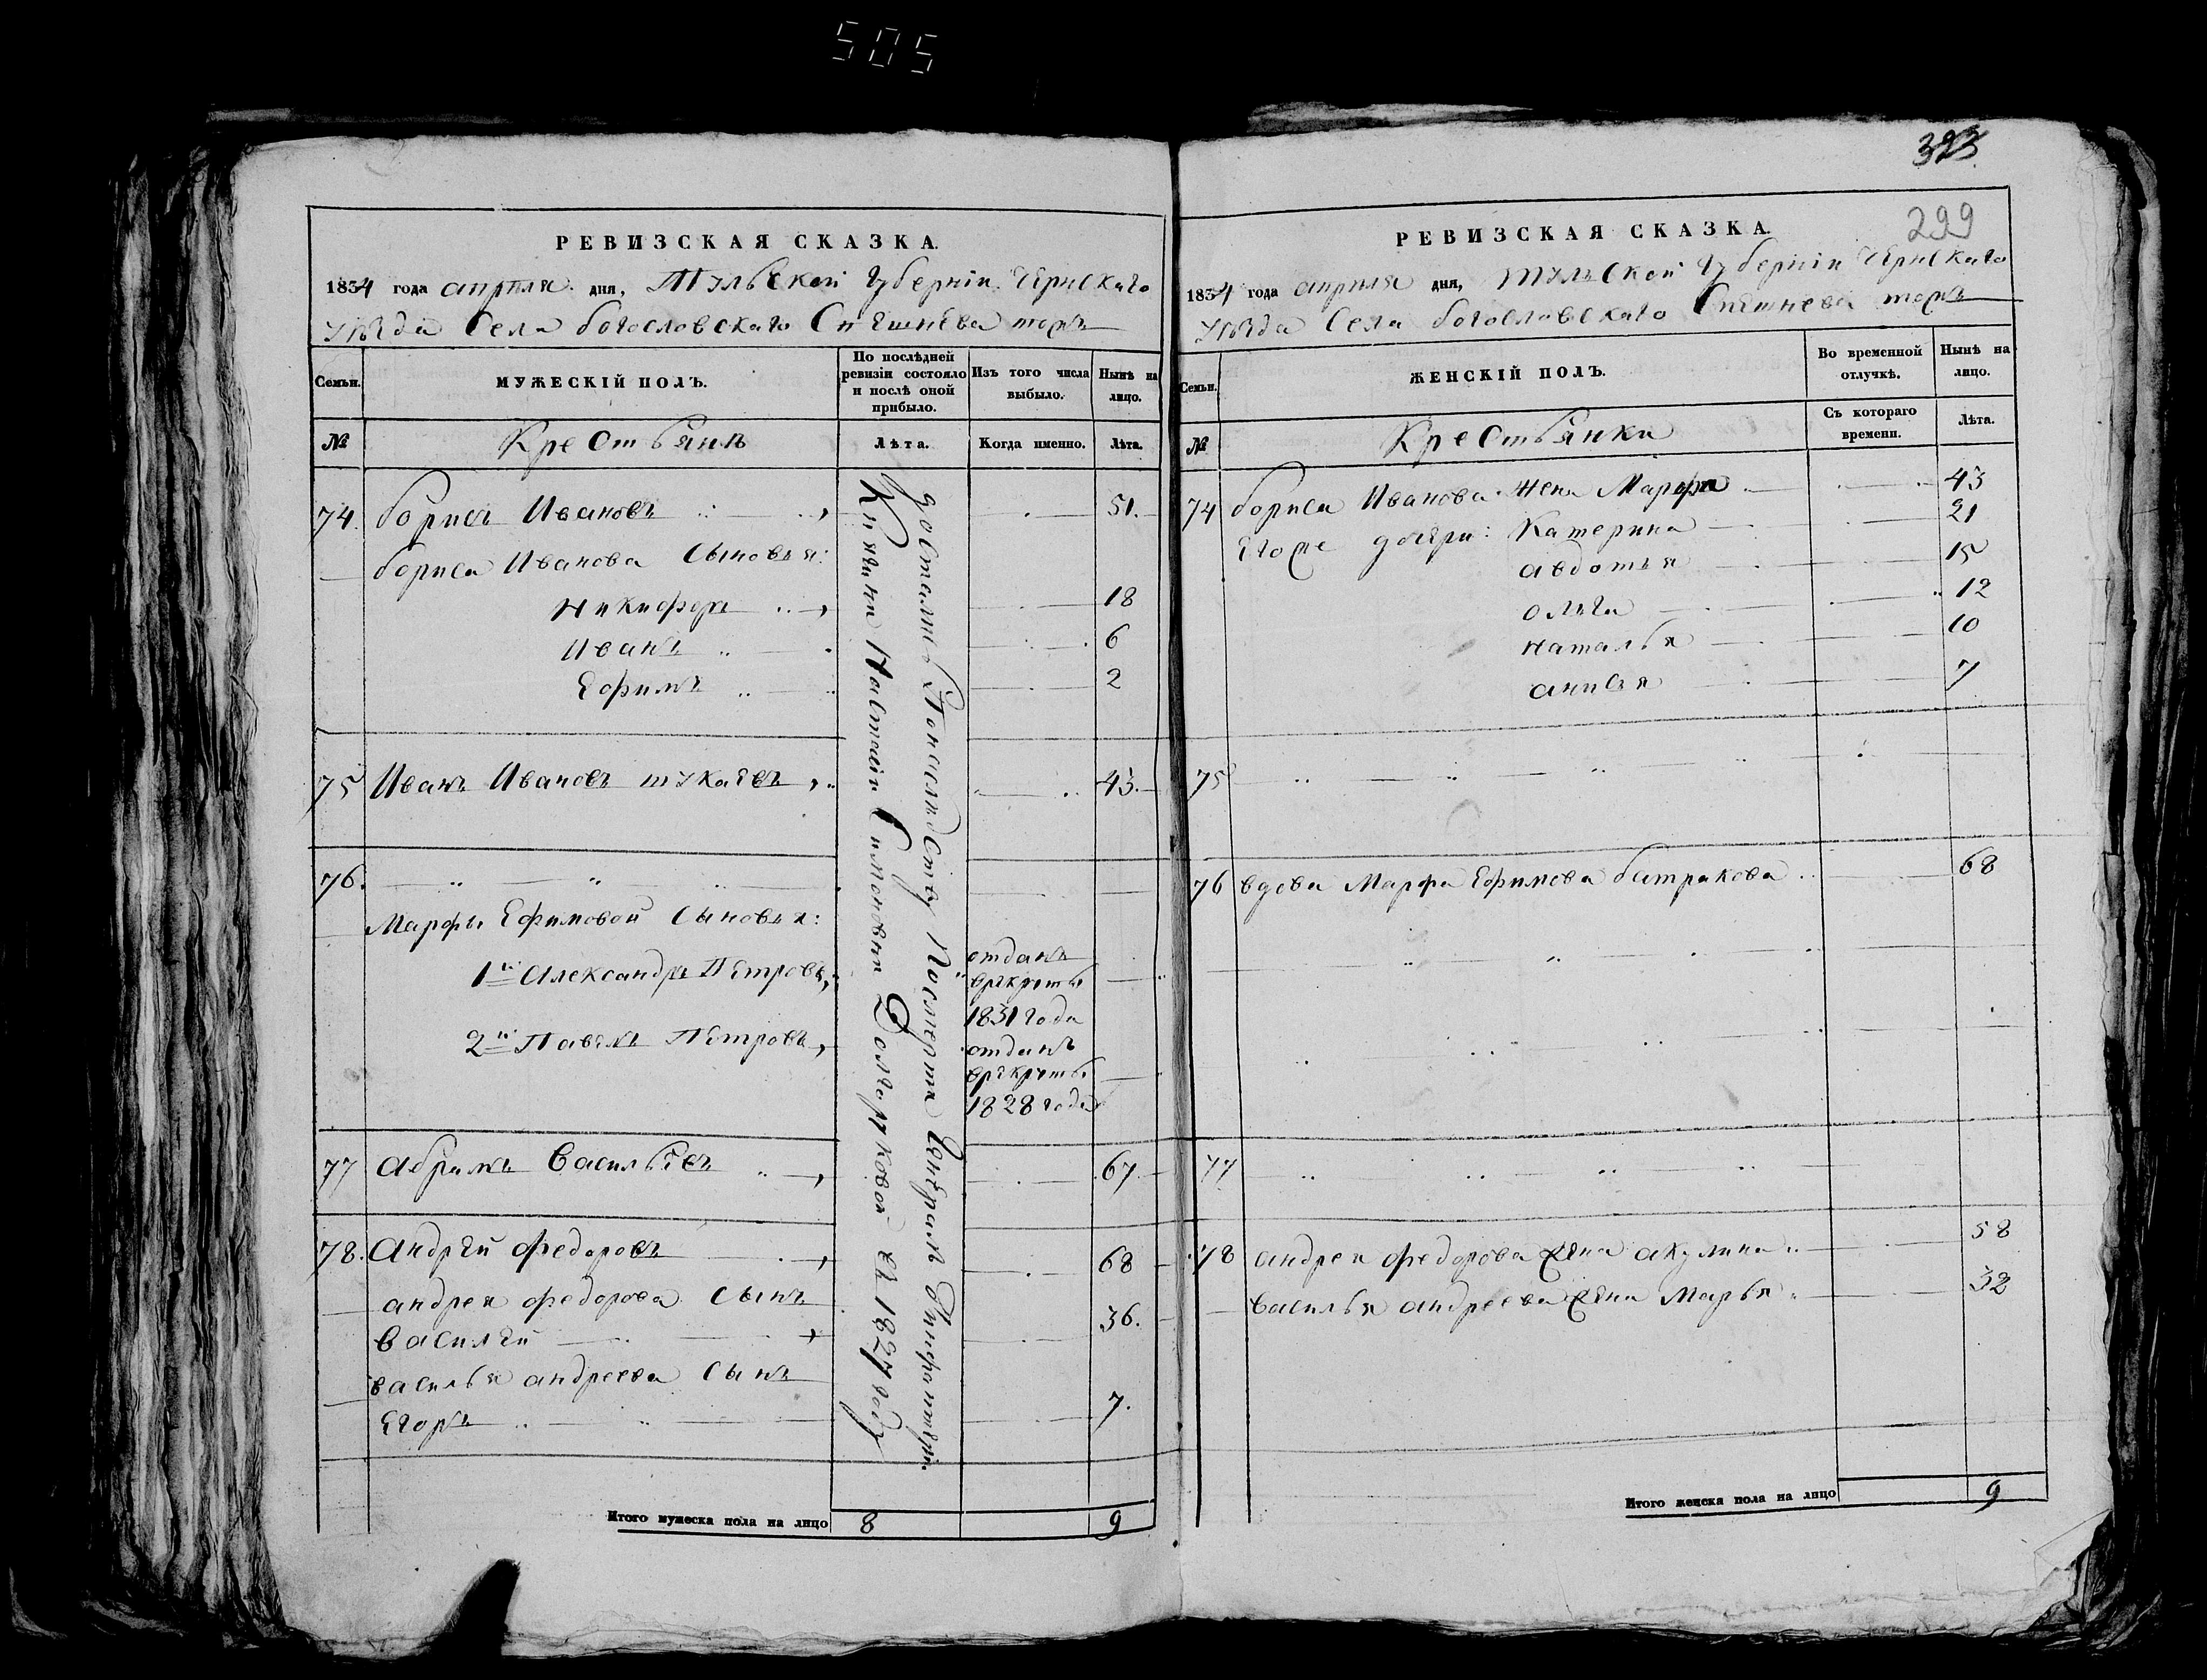 505
РЕВИЗСКАЯ СКАЗКА.
1834 года апреля дня, Тульской Губернiи Чернскаго
Уѣзда Села богословскаго Спешнева тожъ
Семьи.
МУЖЕСКIЙ ПОЛЪ.
По послѣдней ревизiи состояло и послѣ оной прибыло.
Изъ того числа выбыло.
Нынѣ на лицо.
№
Крестьянъ
Лѣта.
Когда именно.
Лѣта.
74. борисъ Ивановъ 51.
бориса Иванова Сыновья:
Никифоръ 18
Иванъ 6
Ефимъ 2
75 Иванъ Ивановъ 43.
76.
Марфы Ефимовой Сыновья:
1й Александръ Петровъ, отданъ
врекруты
1831 года
2й Павелъ Петровъ, отданъ
врекруты
1828 года
77 Абрамъ Васильевъ 67.
78. Андрей Федоровъ 68
андрея федорова Сынъ
Василей 36.
василья андреева Сынъ
Егоръ 7.
достались Понаследству Посмерти
Княгини Настасiи Симоновны Долгоруковой въ 1827 году
Итого мужеска пола на лицо 8 9
299
РЕВИЗСКАЯ СКАЗКА.
1834 года апреля дня, Тульской Губернiи Чернскаго
Уѣзда Села богословскаго Спешнева тожъ
Семьи.
ЖЕНСКIЙ ПОЛЪ.
Во временной отлучкѣ.
Нынѣ на лицо.
№
Крестьянки
Съ котораго времени.
Лѣта.
74 бориса Иванова жена Марфа 43
Егоже дочери: Катерина 21
авдотья 15
ольга 12
наталья 10
анисья 7
75
76 вдова Марфа Ефимова батракова 68
77
78 андрея федорова жена акулина 58
василья андреева жена Марья 32
Итого женска пола на лицо 9